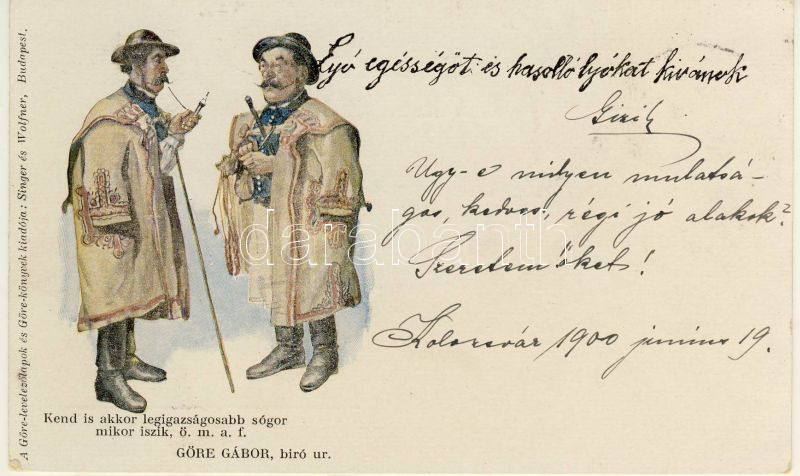 A Göre-levelezőlapok és Göre-könyvek kiadója: Singer és Wolfner, Budapest.
egésségöt és hasolló lyókat kivánok
Ugy-e milyen mulatsá-
gos, kedves, régi jó alakok?
Szeretem őket!
Kolozsvár 1900 június 19.
darabanth
Kend is akkor legigazságosabb sógor
mikor iszik, ö. m. a. f.
GÖRE GÁBOR, biró ur.